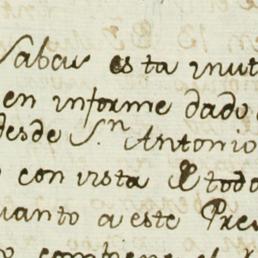 Sabas esta inut
en informe dado
desde S.n Antonio
con vista de todo
uanto a este Pre